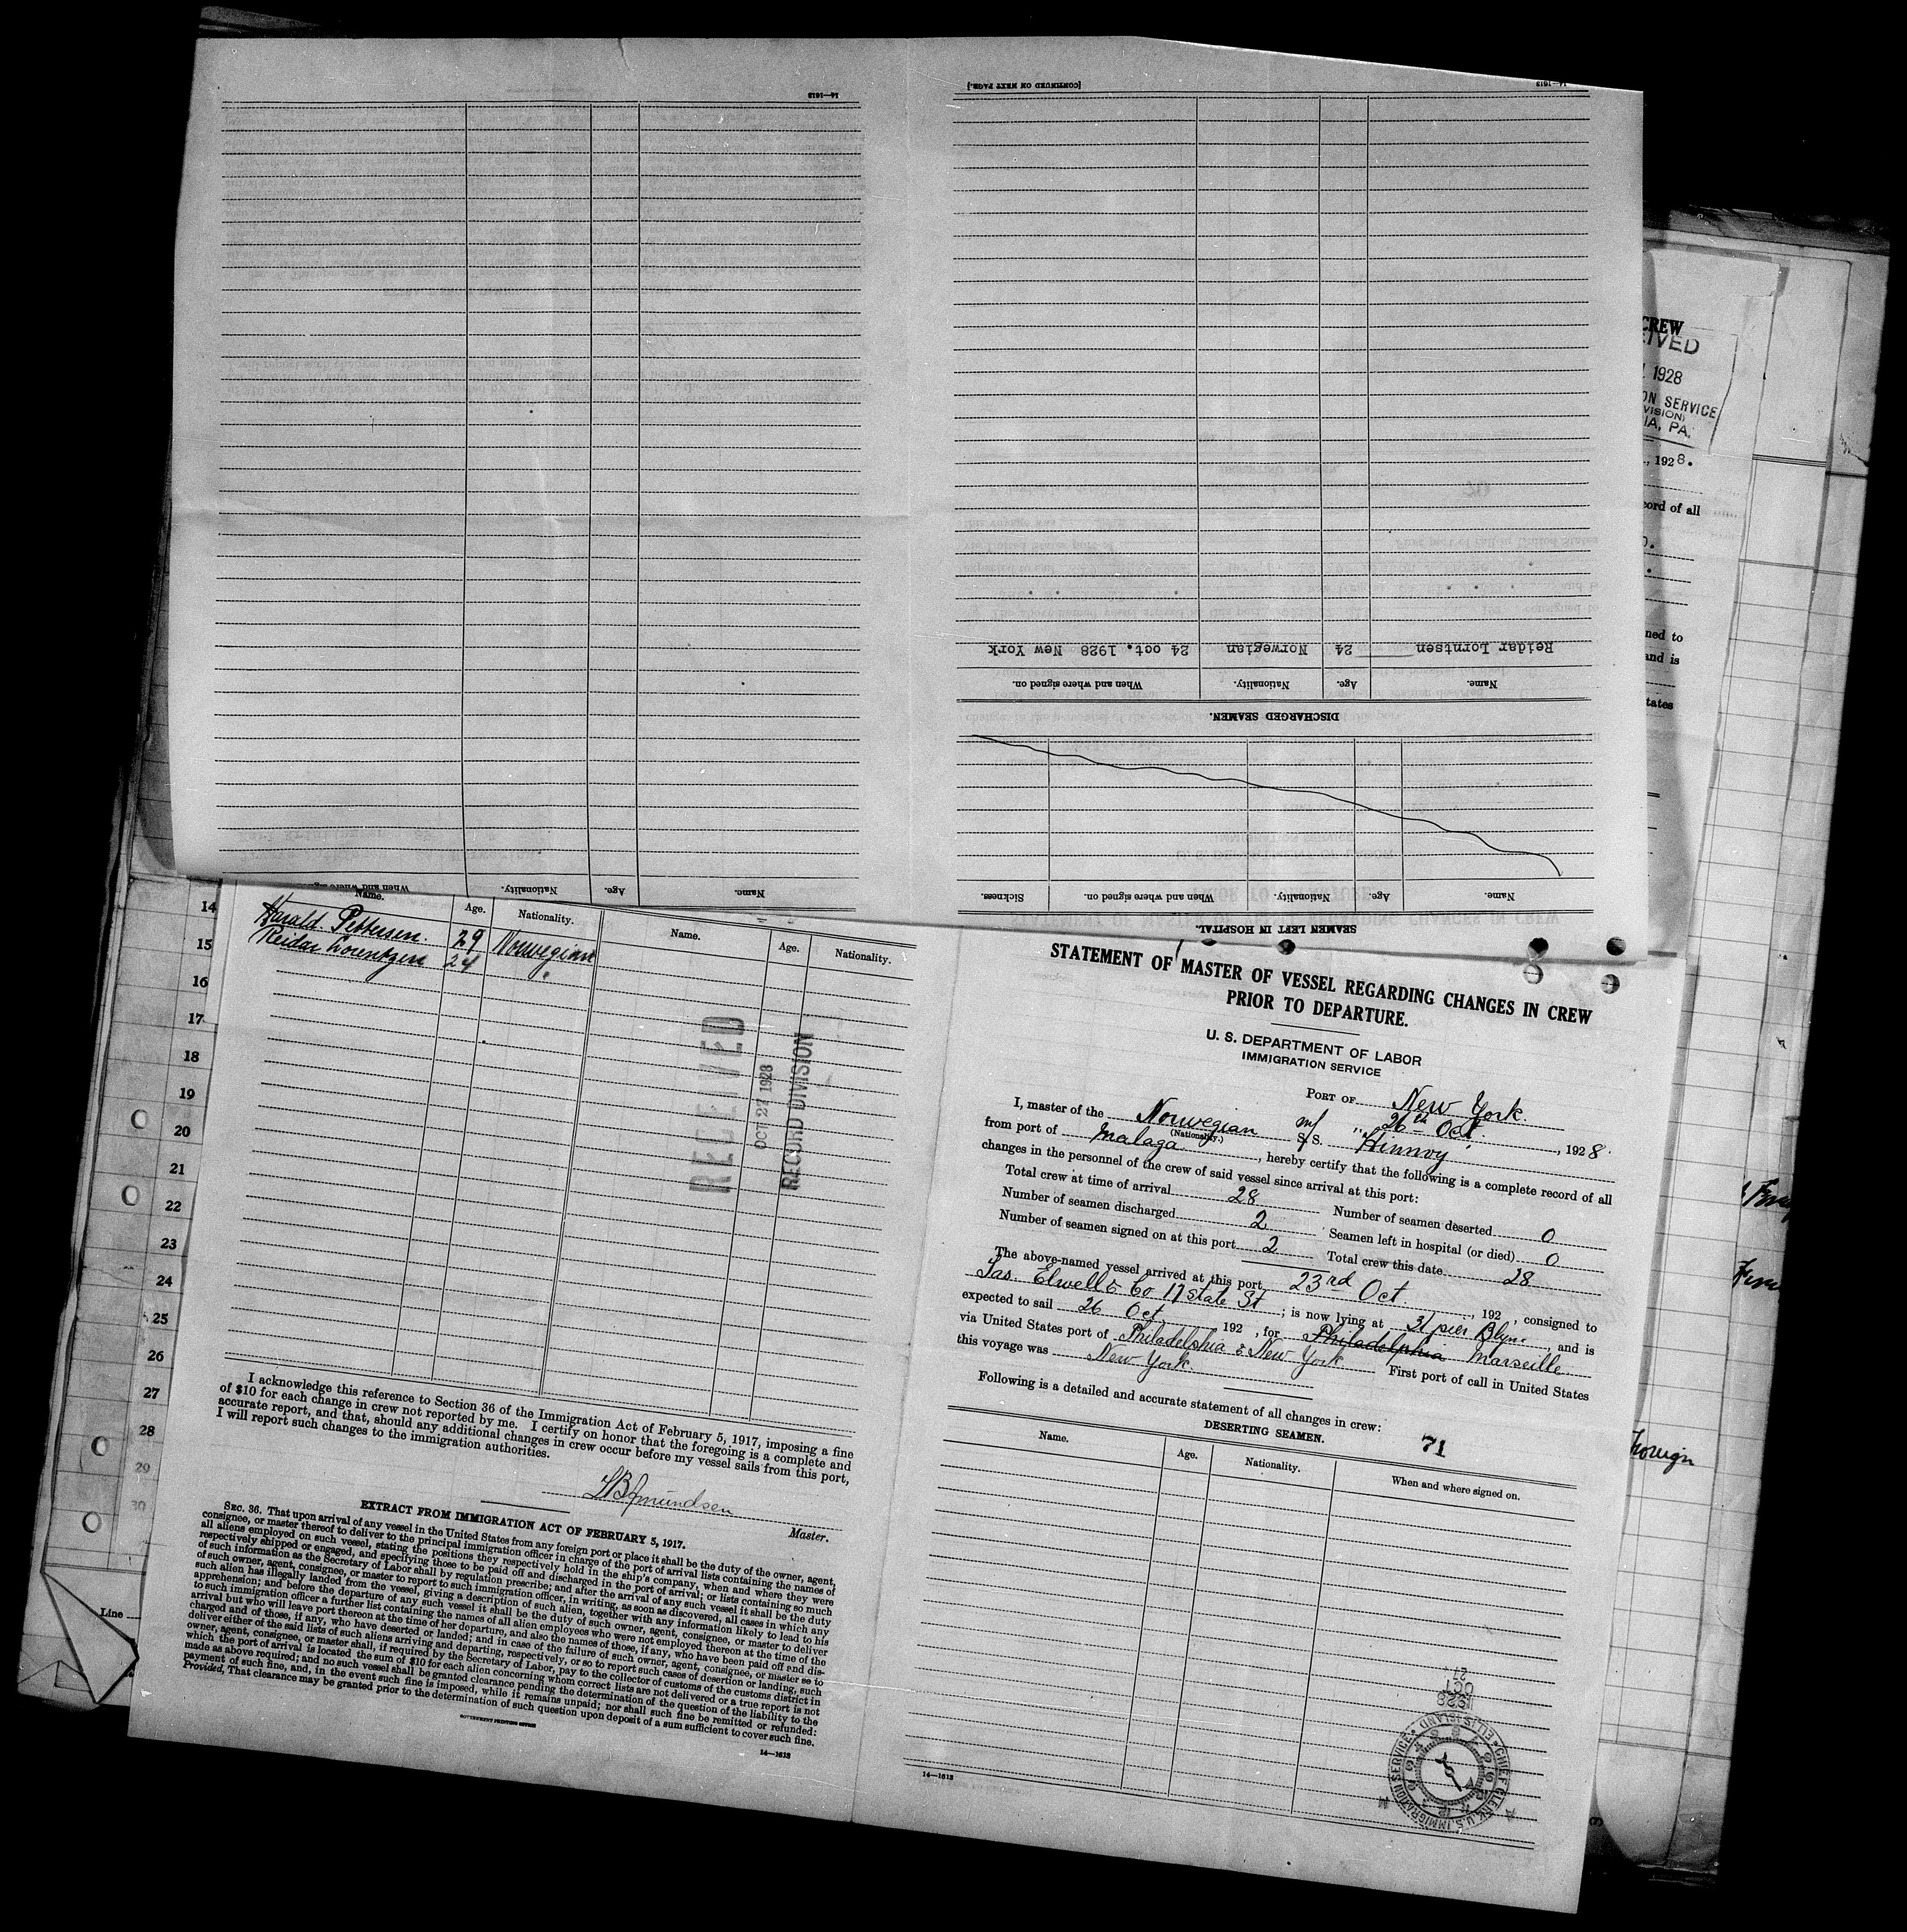 14—1613
When and where
Nationality.
Age.
Name.
[CONTINUED ON NEXT PAGE.]
14—1613
Reidar Lorntsen 24 Norwegian 24 oct. 1928 New York
Name. Age. Nationality. When and where signed on.
DISCHARGED SEAMEN.
Name. Age. Nationality. When and where signed on. Sickness.
SEAMEN LEFT IN HOSPITAL.
CREW
EIVED
1928
ON SERVICE
VISION)
IA, PA.
, 1928.
cord of all
ned to
and is
tates
14
15
16
17
18
19
20
21
22
23
24
25
26
27
28
29
30
Line
Name. Age. Nationality. Name. Age. Nationality.
Harald Pettersen. 29 Norwegian
Reidar Lorentzen 24 "
RECEIVED
OCT 27 1928
RECORD DIVISION
I acknowledge this reference to Section 36 of the Immigration Act of February 5, 1917, imposing a fine
of $10 for each change in crew not reported by me. I certify on honor that the foregoing is a complete and
accurate report, and that, should any additional changes in crew occur before my vessel sails from this port,
I will report such changes to the immigration authorities.
Amundsen
Master.
EXTRACT FROM IMMIGRATION ACT OF FEBRUARY 5, 1917.
SEC. 36. That upon arrival of any vessel in the United States from any foreign port or place it shall be the duty of the owner, agent,
consignee, or master thereof to deliver to the principal immigration officer in charge of the port of arrival lists containing the names of
all aliens employed on such vessel, stating the positions they respectively hold in the ship's company, when and where they were
respectively shipped or engaged, and specifying those to be paid off and discharged in the port of arrival; or lists containing so much
of such information as the Secretary of Labor shall by regulation prescribe; and after the arrival of any such vessel it shall be the duty
of such owner, agent, consignee, or master to report to such immigration officer, in writing, as soon as discovered, all cases in which any
such alien has illegally landed from the vessel, giving a description of such alien, together with any information likely to lead to his
apprehension; and before the departure of any such vessel it shall be the duty of such owner, agent, consignee, or master to deliver
to such immigration officer a further list containing the names of all alien employees who were not employed thereon at the time of the
arrival but who will leave port thereon at the time of her departure, and also the names of those, if any, who have been paid off and dis-
charged and of those, if any, who have deserted or landed; and in case of the failure of such owner, agent, consignee, or master so to
deliver either of the said lists of such aliens arriving and departing, respectively, or so to report such cases of desertion or landing, such
owner, agent, consignee, or master shall, if required by the Secretary of Labor, pay to the collector of customs of the customs district in
which the port of arrival is located the sum of $10 for each alien concerning whom correct lists are not delivered or a true report is not
made as above required; and no such vessel shall be granted clearance pending the determination of the question of the liability to the
payment of such fine, and, in the event such fine is imposed, while it remains unpaid; nor shall such fine be remitted or refunded:
Provided, That clearance may be granted prior to the determination of such question upon deposit of a sum sufficient to cover such fine.
GOVERNMENT PRINTING OFFICE
14—1613
STATEMENT OF MASTER OF VESSEL REGARDING CHANGES IN CREW
PRIOR TO DEPARTURE.
U. S. DEPARTMENT OF LABOR
IMMIGRATION SERVICE
PORT OF New York
26th Oct. , 1928.
I, master of the Norwegian m/ S/S. "Hinnoy"
(Nationality.)
from port of Malaga , hereby certify that the following is a complete record of all
changes in the personnel of the crew of said vessel since arrival at this port:
Total crew at time of arrival 28 Number of seamen deserted 0
Number of seamen discharged 2 Seamen left in hospital (or died) 0
Number of seamen signed on at this port 2 Total crew this date 28
The above-named vessel arrived at this port 23rd Oct. , 192 , consigned to
Jas. Elwell & Co 17 State St ; is now lying at 31 pier Blyn. and is
expected to sail 26 Oct 192 , for Philadelphia Marseille
via United States port of Philadelphia & New York First port of call in United States
this voyage was New York.
Following is a detailed and accurate statement of all changes in crew:
DESERTING SEAMEN. 71
Name. Age. Nationality. When and where signed on.
1928
OCT
27
CHIEF CLERK, U.S. IMMIGRATION SERVICE ELLIS ISLAND
A M
14—1613
Foreign